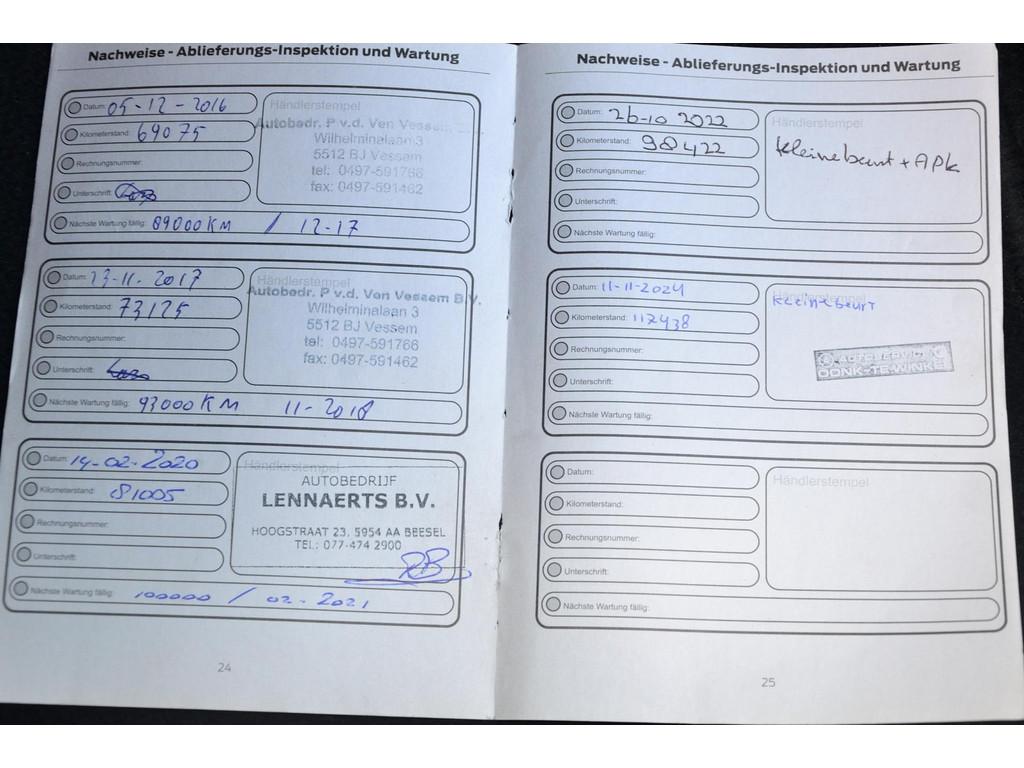 Nachweise - Ablieferungs-Inspektion und Wartung
Datum: 05-12-2016
Händlerstempel
Kilometerstand: 69075
Autobedr. P v.d. Ven Vessem B.V.
Wilhelminalaan 3
5512 BJ Vessem
tel: 0497-591766
fax: 0497-591462
Rechnungsnummer:
Unterschrift:
Nächste Wartung fällig: 89000 KM / 12-17
Datum: 13-11-2017
Händlerstempel
Kilometerstand: 73125
Autobedr. P v.d. Ven Vessem B.V.
Wilhelminalaan 3
5512 BJ Vessem
tel: 0497-591766
fax: 0497-591462
Rechnungsnummer:
Unterschrift:
Nächste Wartung fällig: 93000 KM 11-2018
Datum: 14-02-2020
Händlerstempel
Kilometerstand: 81005
AUTOBEDRIJF
LENNAERTS B.V.
HOOGSTRAAT 23, 5954 AA BEESEL
TEL.: 077-474 2900
Rechnungsnummer:
Unterschrift:
RB
Nächste Wartung fällig: 100000 / 02-2021
24
Nachweise - Ablieferungs-Inspektion und Wartung
Datum: 26-10 2022
Händlerstempel
Kilometerstand: 98422
kleine beurt + APK
Rechnungsnummer:
Unterschrift:
Nächste Wartung fällig:
Datum: 11-11-2024
Händlerstempel
Kilometerstand: 112438
kleine beurt
Rechnungsnummer:
AUTOSERVICE
DONK-TE WINKEL
Unterschrift:
Nächste Wartung fällig:
Datum:
Händlerstempel
Kilometerstand:
Rechnungsnummer:
Unterschrift:
Nächste Wartung fällig:
25